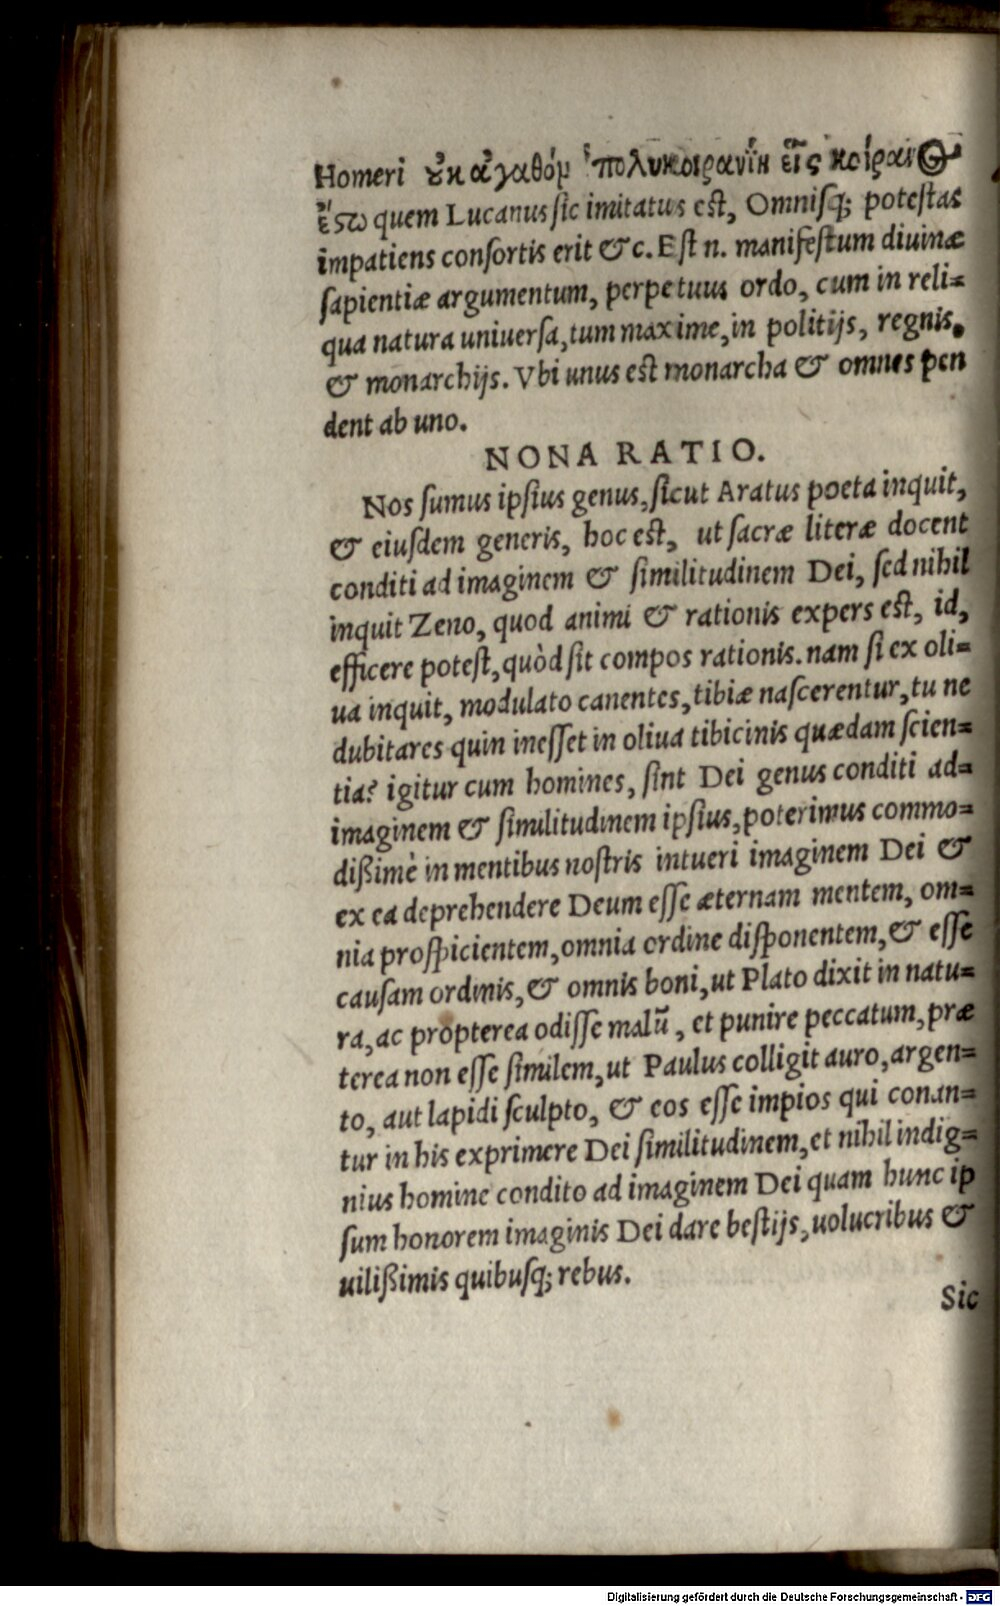 Homeri ȣ̓κ ἀγαθόμ πολυκοιρανίη εἷς κοίραν⊙
ἔςω quem Lucanus sic imitatus est, Omnisq; potestas
impatiens consortis erit & c. Est n. manifestum diuinæ
sapientiæ argumentum, perpetuus ordo, cum in reli=
qua natura uniuersa, tum maxime, in politijs, regnis,
& monarchijs. Vbi unus est monarcha & omnes pen
dent ab uno.
NONA RATIO.
Nos sumus ipsius genus, sicut Aratus poeta inquit,
& eiusdem generis, hoc est, ut sacræ literæ docent
conditi ad imaginem & similitudinem Dei, sed nihil
inquit Zeno, quod animi & rationis expers est, id,
efficere potest, quòd sit compos rationis. nam si ex oli=
ua inquit, modulato canentes, tibiæ nascerentur, tu ne
dubitares quin inesset in oliua tibicinis quædam scien=
tia? igitur cum homines, sint Dei genus conditi ad=
imaginem & similitudinem ipsius, poterimus commo=
dißimè in mentibus nostris intueri imaginem Dei &
ex ea deprehendere Deum esse æternam mentem, om=
nia prospicientem, omnia ordine disponentem, & esse
causam ordinis, & omnis boni, ut Plato dixit in natu=
ra, ac propterea odisse malũ, et punire peccatum, præ
terea non esse similem, ut Paulus colligit auro, argen=
to, aut lapidi sculpto, & eos esse impios qui conan=
tur in his exprimere Dei similitudinem, et nihil indig=
nius homine condito ad imaginem Dei quam hunc ip
sum honorem imaginis Dei dare bestijs, uolucribus &
uilißimis quibusq; rebus.
Sic
Digitalisierung gefördert durch die Deutsche Forschungsgemeinschaft - DFG